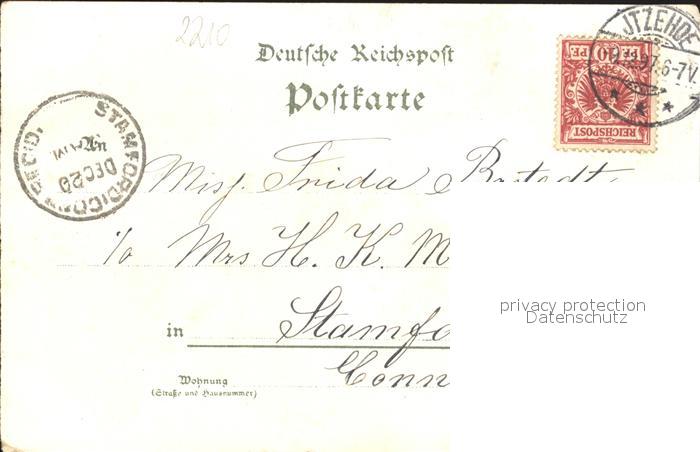 2210
Deutsche Reichspost
Postkarte
ITZEHOE
97. 6-7V.
10 PF
REICHSPOST
STAMFORD, CONN. REC'D.
DEC 20
An
Miss Frida
c/o Mrs H. K. M
in Stamfo
Conn
Wohnung
(Straße und Hausnummer)
privacy protection
Datenschutz